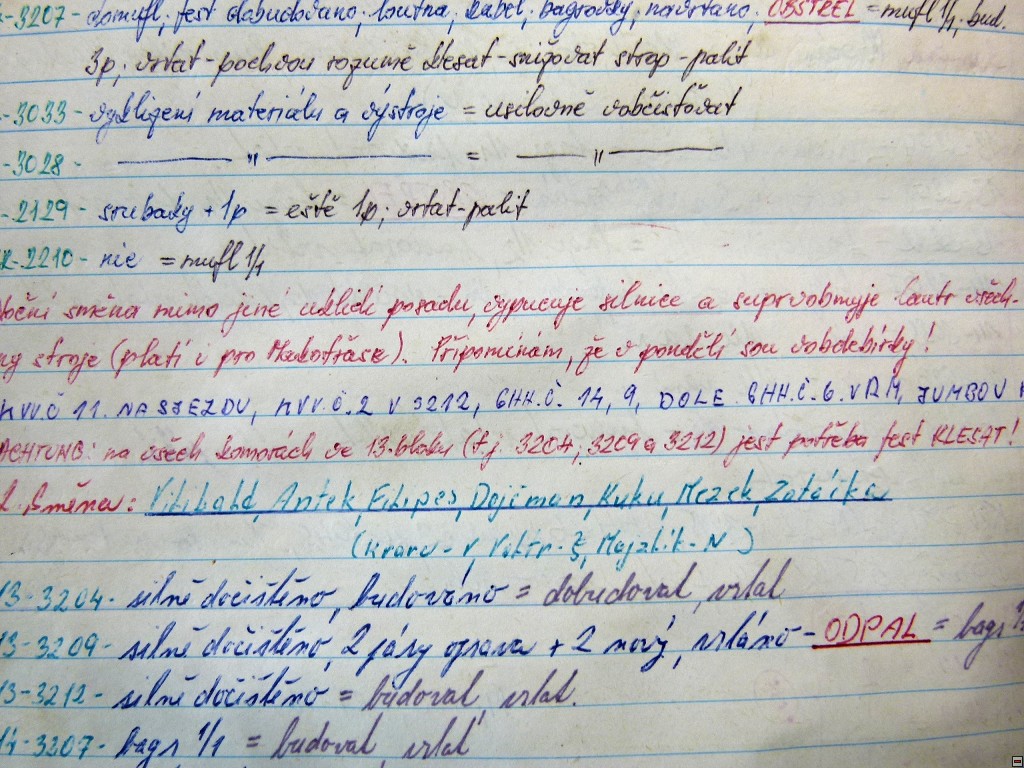 -3207- domufl; fest dobudováno; loutna, kabel, bagrovky, navrtáno, OBSTŘEL = mufl 1/1, bud.
3p; vrtat-pochvou rozumně klesat-snižovat strop-palit
-3033- vyklizení materiálu a výstroje = usilovně vobčišťovat
-3028- —— " —— = —— " ——
-2129- srubady + 1p = eště 1p; vrtat-palit
-2210- nic = mufl 1/1
noční směna mimo jiné uklidí posadu, vypucuje silnice a suprvobmyje lautr všech-
ny stroje (platí i pro Makotřase). Připomínám, že v pondělí sou vobdebírky!
11. NA SJEZDU, Č. 2 V 3212, GHH.Č. 14, 9, DOLE GHH.Č. 6. VRM, JUMBOU
ACHTUNG: na všech komorách ve 13. bloku (t.j. 3204, 3209 a 3212) jest potřeba fest KLESAT!
2. Směna: Vilibald, Antek, Filipes, Dojčman, Kuku, Mrzek, Zatáčka
(Kraru - V, Majzlík - N)
13-3204- silně dočištěno, budováno = dobudoval, vrtat
13-3209- silně dočištěno, 2 páry oprava + 2 nový, vrtáno - ODPAL = bagr
13-3212- silně dočištěno = budoval, vrtat.
14-3207- bagr 1/1 = budoval, vrtat